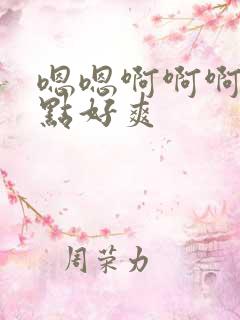 嗯嗯啊啊啊
點好爽
周荣力